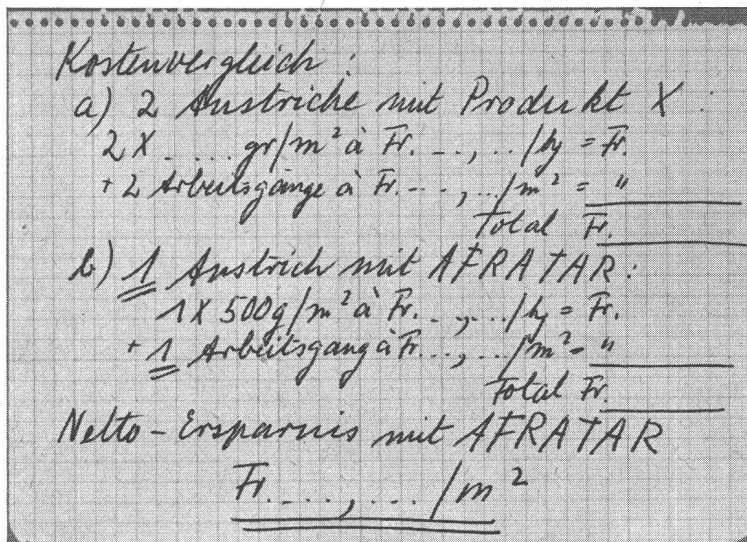 Kostenvergleich:
a) 2 Anstriche mit Produkt X:
2 X .... gr/m² à Fr. ..,../kg = Fr.
+ 2 Arbeitsgänge à Fr. ...,.../m² = "
Total Fr.
b) 1 Anstrich mit AFRATAR:
1 X 500g/m² à Fr. ..,../kg = Fr.
+ 1 Arbeitsgang à Fr...,.../m² = "
Total Fr.
Netto-Ersparnis mit AFRATAR
Fr. ...,.../m²